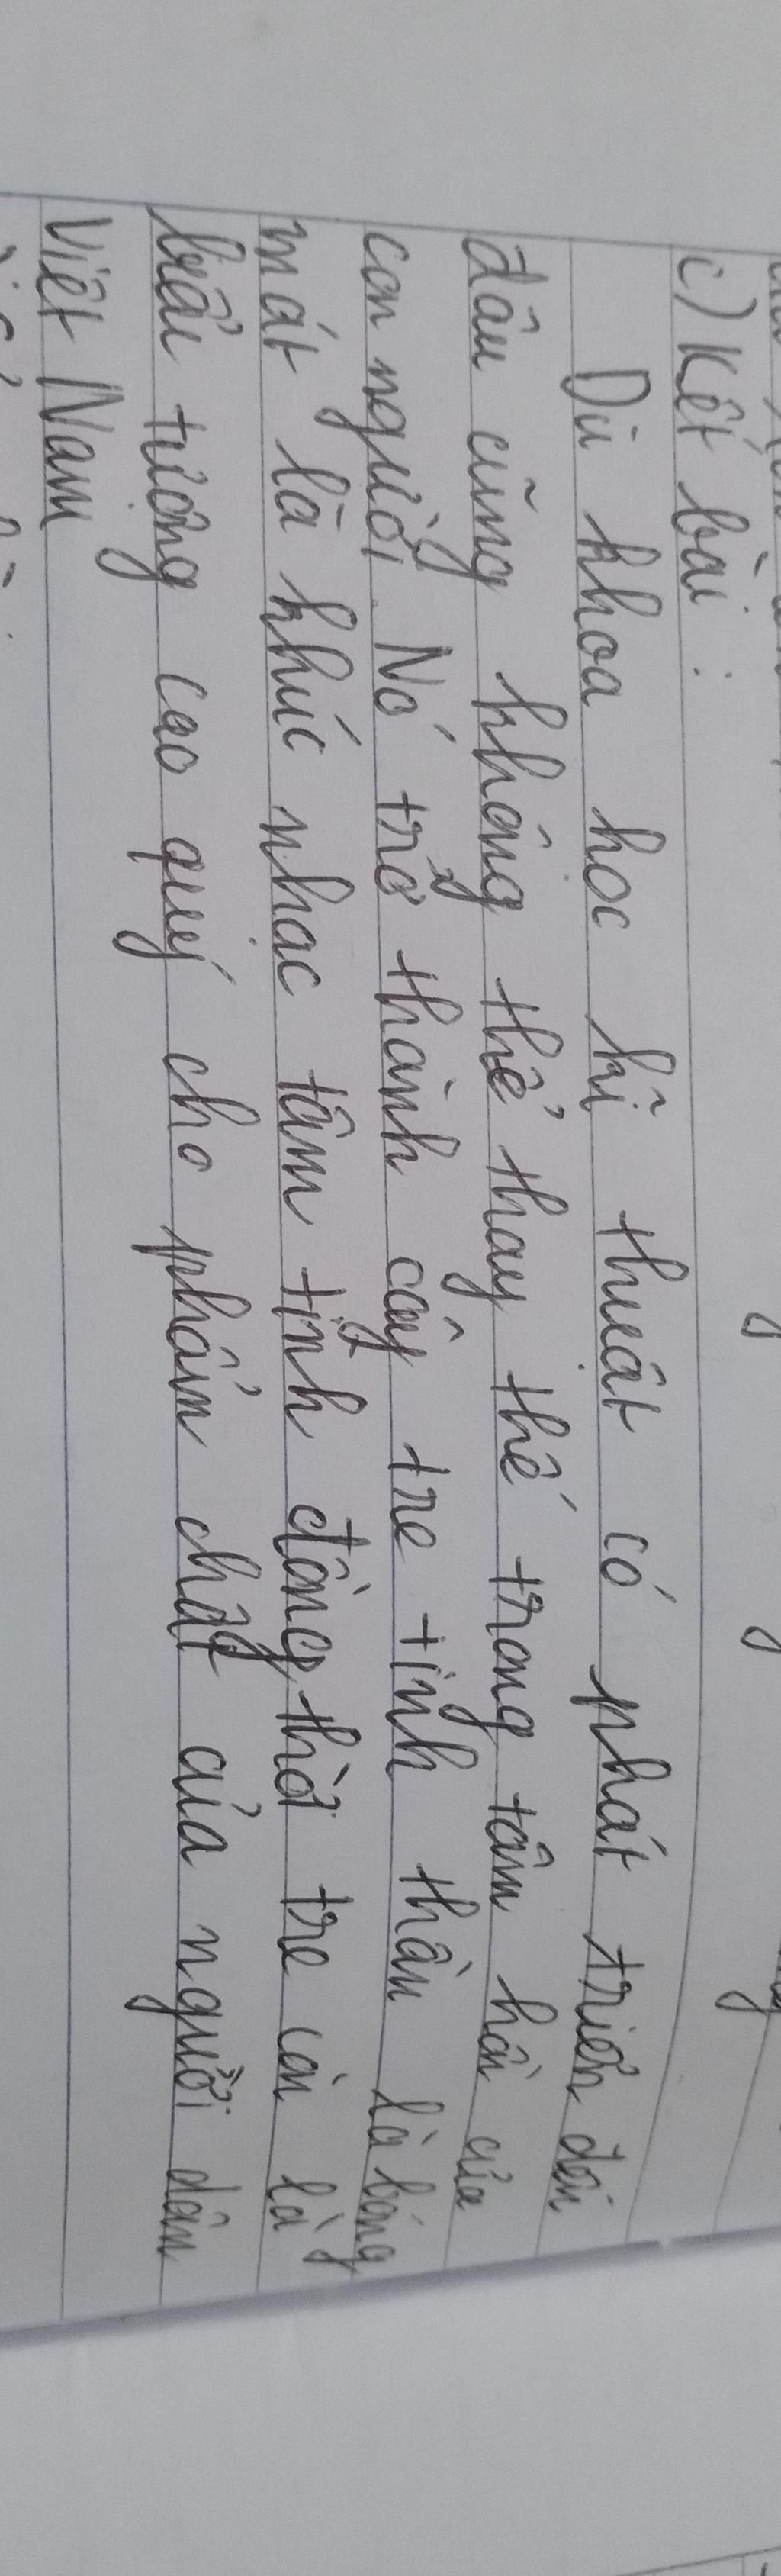 c) Kết bài :
Dù khoa học kĩ thuật có phát triển đến
đâu cũng không thể thay thế trong tâm hồn của
con người. Nó trở thành cây tre tinh thần là bóng
mát là khúc nhạc tâm tình đồng thời tre còn là
biểu tượng cao quý cho phẩm chất của người dân
Việt Nam